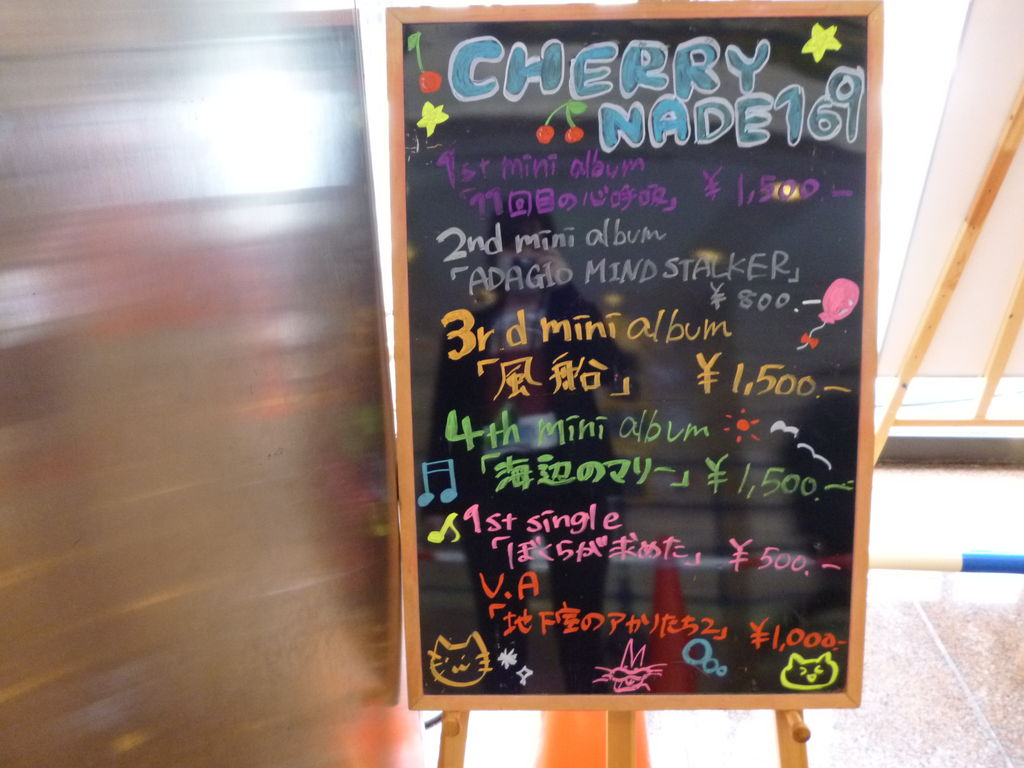 CHERRY
NADE169
1st mini album
「11回目の心呼吸」 ¥1,500.-
2nd mini album
「ADAGIO MIND STALKER」
¥800.-
3rd mini album
「風船」 ¥1,500.-
4th mini album
「海辺のマリー」 ¥1,500.-
1st single
「ぼくらが求めた」 ¥500.-
V.A
「地下室のアカリたち2」 ¥1,000.-